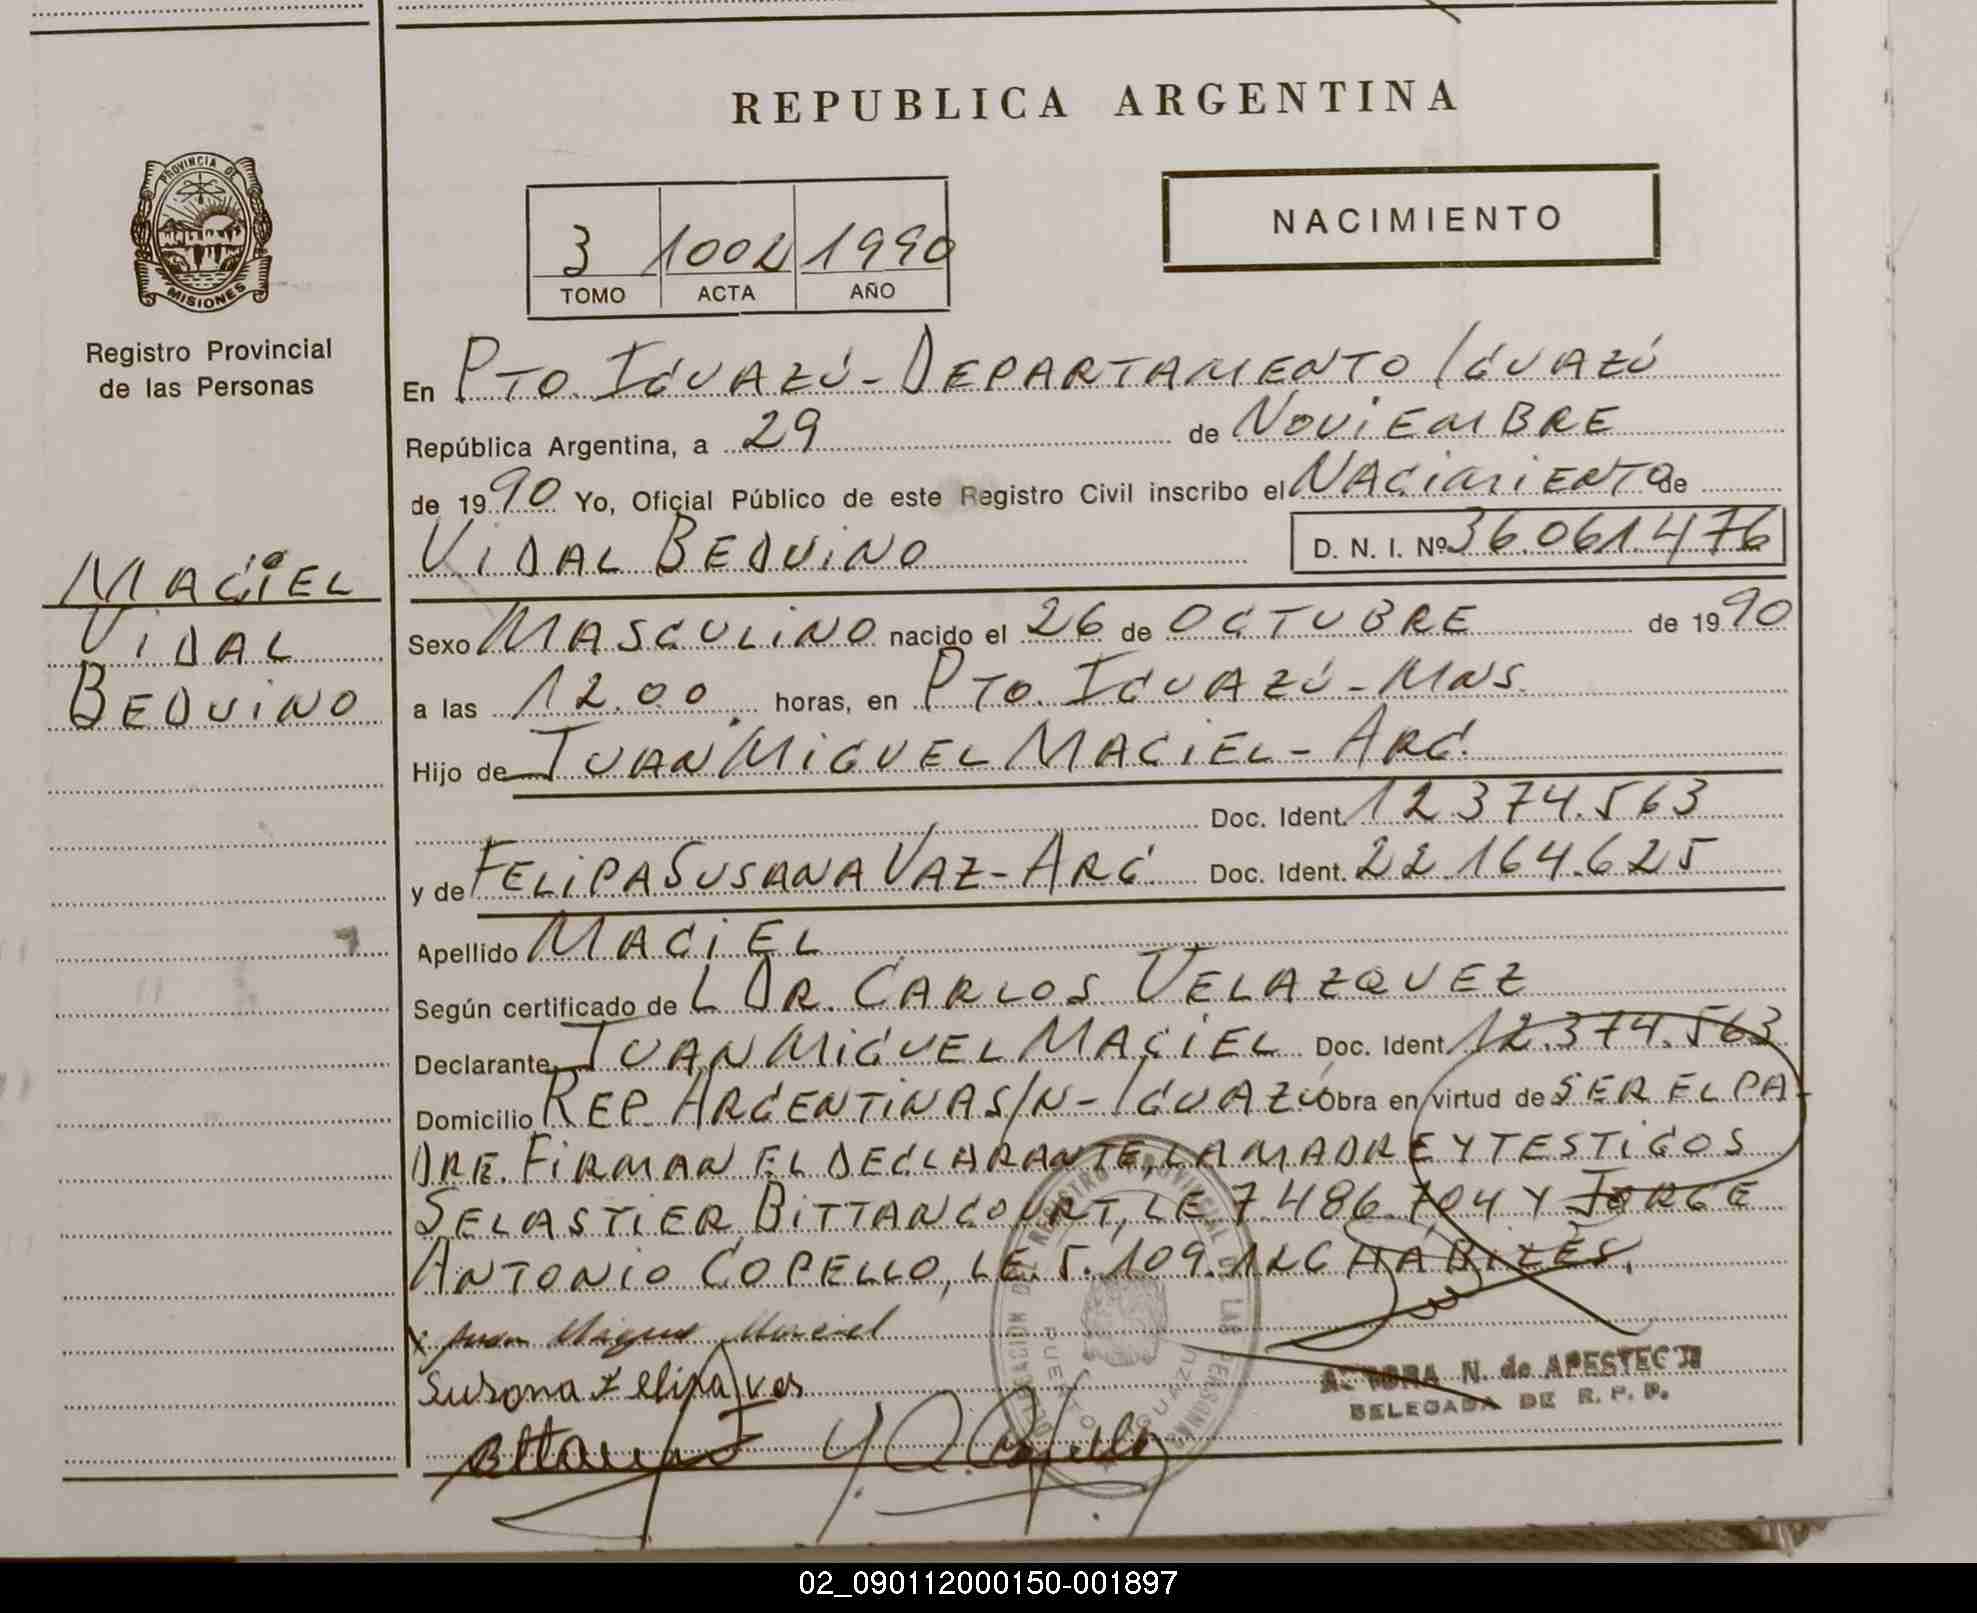 REPUBLICA ARGENTINA
PROVINCIA DE
MISIONES
Registro Provincial
de las Personas
NACIMIENTO
3 1002 1990
TOMO ACTA AÑO
En PTO. IGUAZÚ - DEPARTAMENTO IGUAZÚ
República Argentina, a 29 de NOVIEMBRE
de 1990 Yo, Oficial Público de este Registro Civil inscribo el NACIMIENTO de
VIDAL BEDUINO D. N. I. Nº 36.061.476
MACIEL
VIDAL
BEDUINO
Sexo MASCULINO nacido el 26 de OCTUBRE de 1990
a las 12.00 horas, en PTO. IGUAZÚ - MNS.
Hijo de JUAN MIGUEL MACIEL - ARG.
Doc. Ident. 12.374.563
y de FELIPA SUSANA VAZ - ARG. Doc. Ident. 22.164.625
Apellido MACIEL
Según certificado de L DR. CARLOS VELAZQUEZ
Declarante JUAN MIGUEL MACIEL Doc. Ident. 12.374.563
Domicilio REP. ARGENTINA S/N - IGUAZÚ Obra en virtud de SER EL PA-
DRE. FIRMAN EL DECLARANTE, LA MADRE Y TESTIGOS
SELASTIER BITTANCOURT, LE 7.486.704 Y JORGE
ANTONIO COPELLO, LE. 5.109. HÁBILES.
x Juan Miguel Maciel
Susana Felipa
N. de APESTEC
DELEGADA DE R. P. P.
02_090112000150-001897